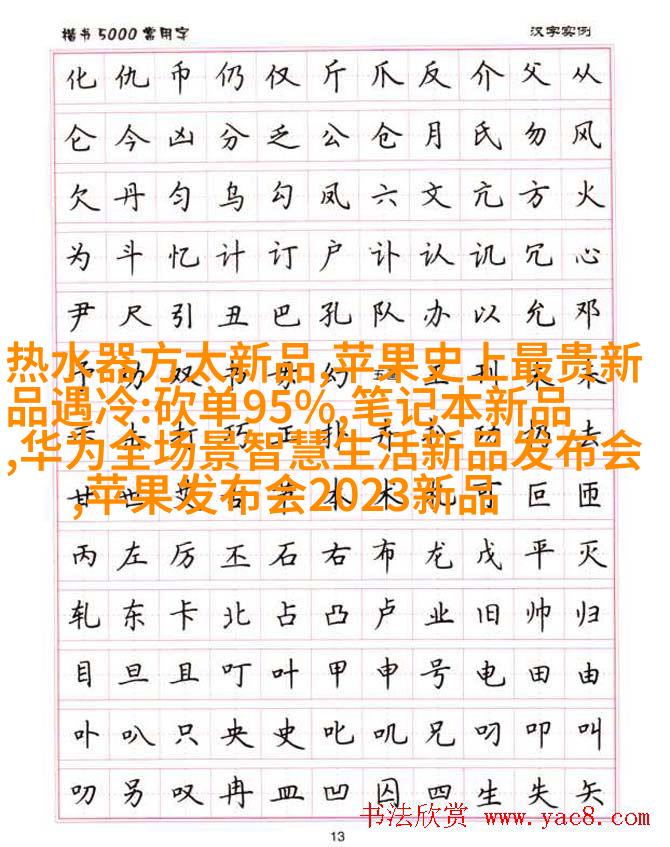 楷书5000常用字 汉字实例
化仇币仍仅斤爪反介父从
仑今凶分乏公仓月氏勿风
欠丹匀乌勾凤六文亢方火
为斗忆计订户讣认讥冗心
尹尺引丑巴孔队办以允邓
热水器方太新品,苹果史上最贵新
品遇冷:砍单95%,笔记本新品
,华为全场景智慧生活新品发布会
,苹果发布会2023新品
丙左厉丕石右布龙戊平灭
轧东卡北占凸卢业旧帅归
目旦且叮叶甲申号电田由
卟叭只央史叱叽兄叼叩叫
叨另叹冉皿凹囚四生失矢
书法欣赏 www.yac8.com
13